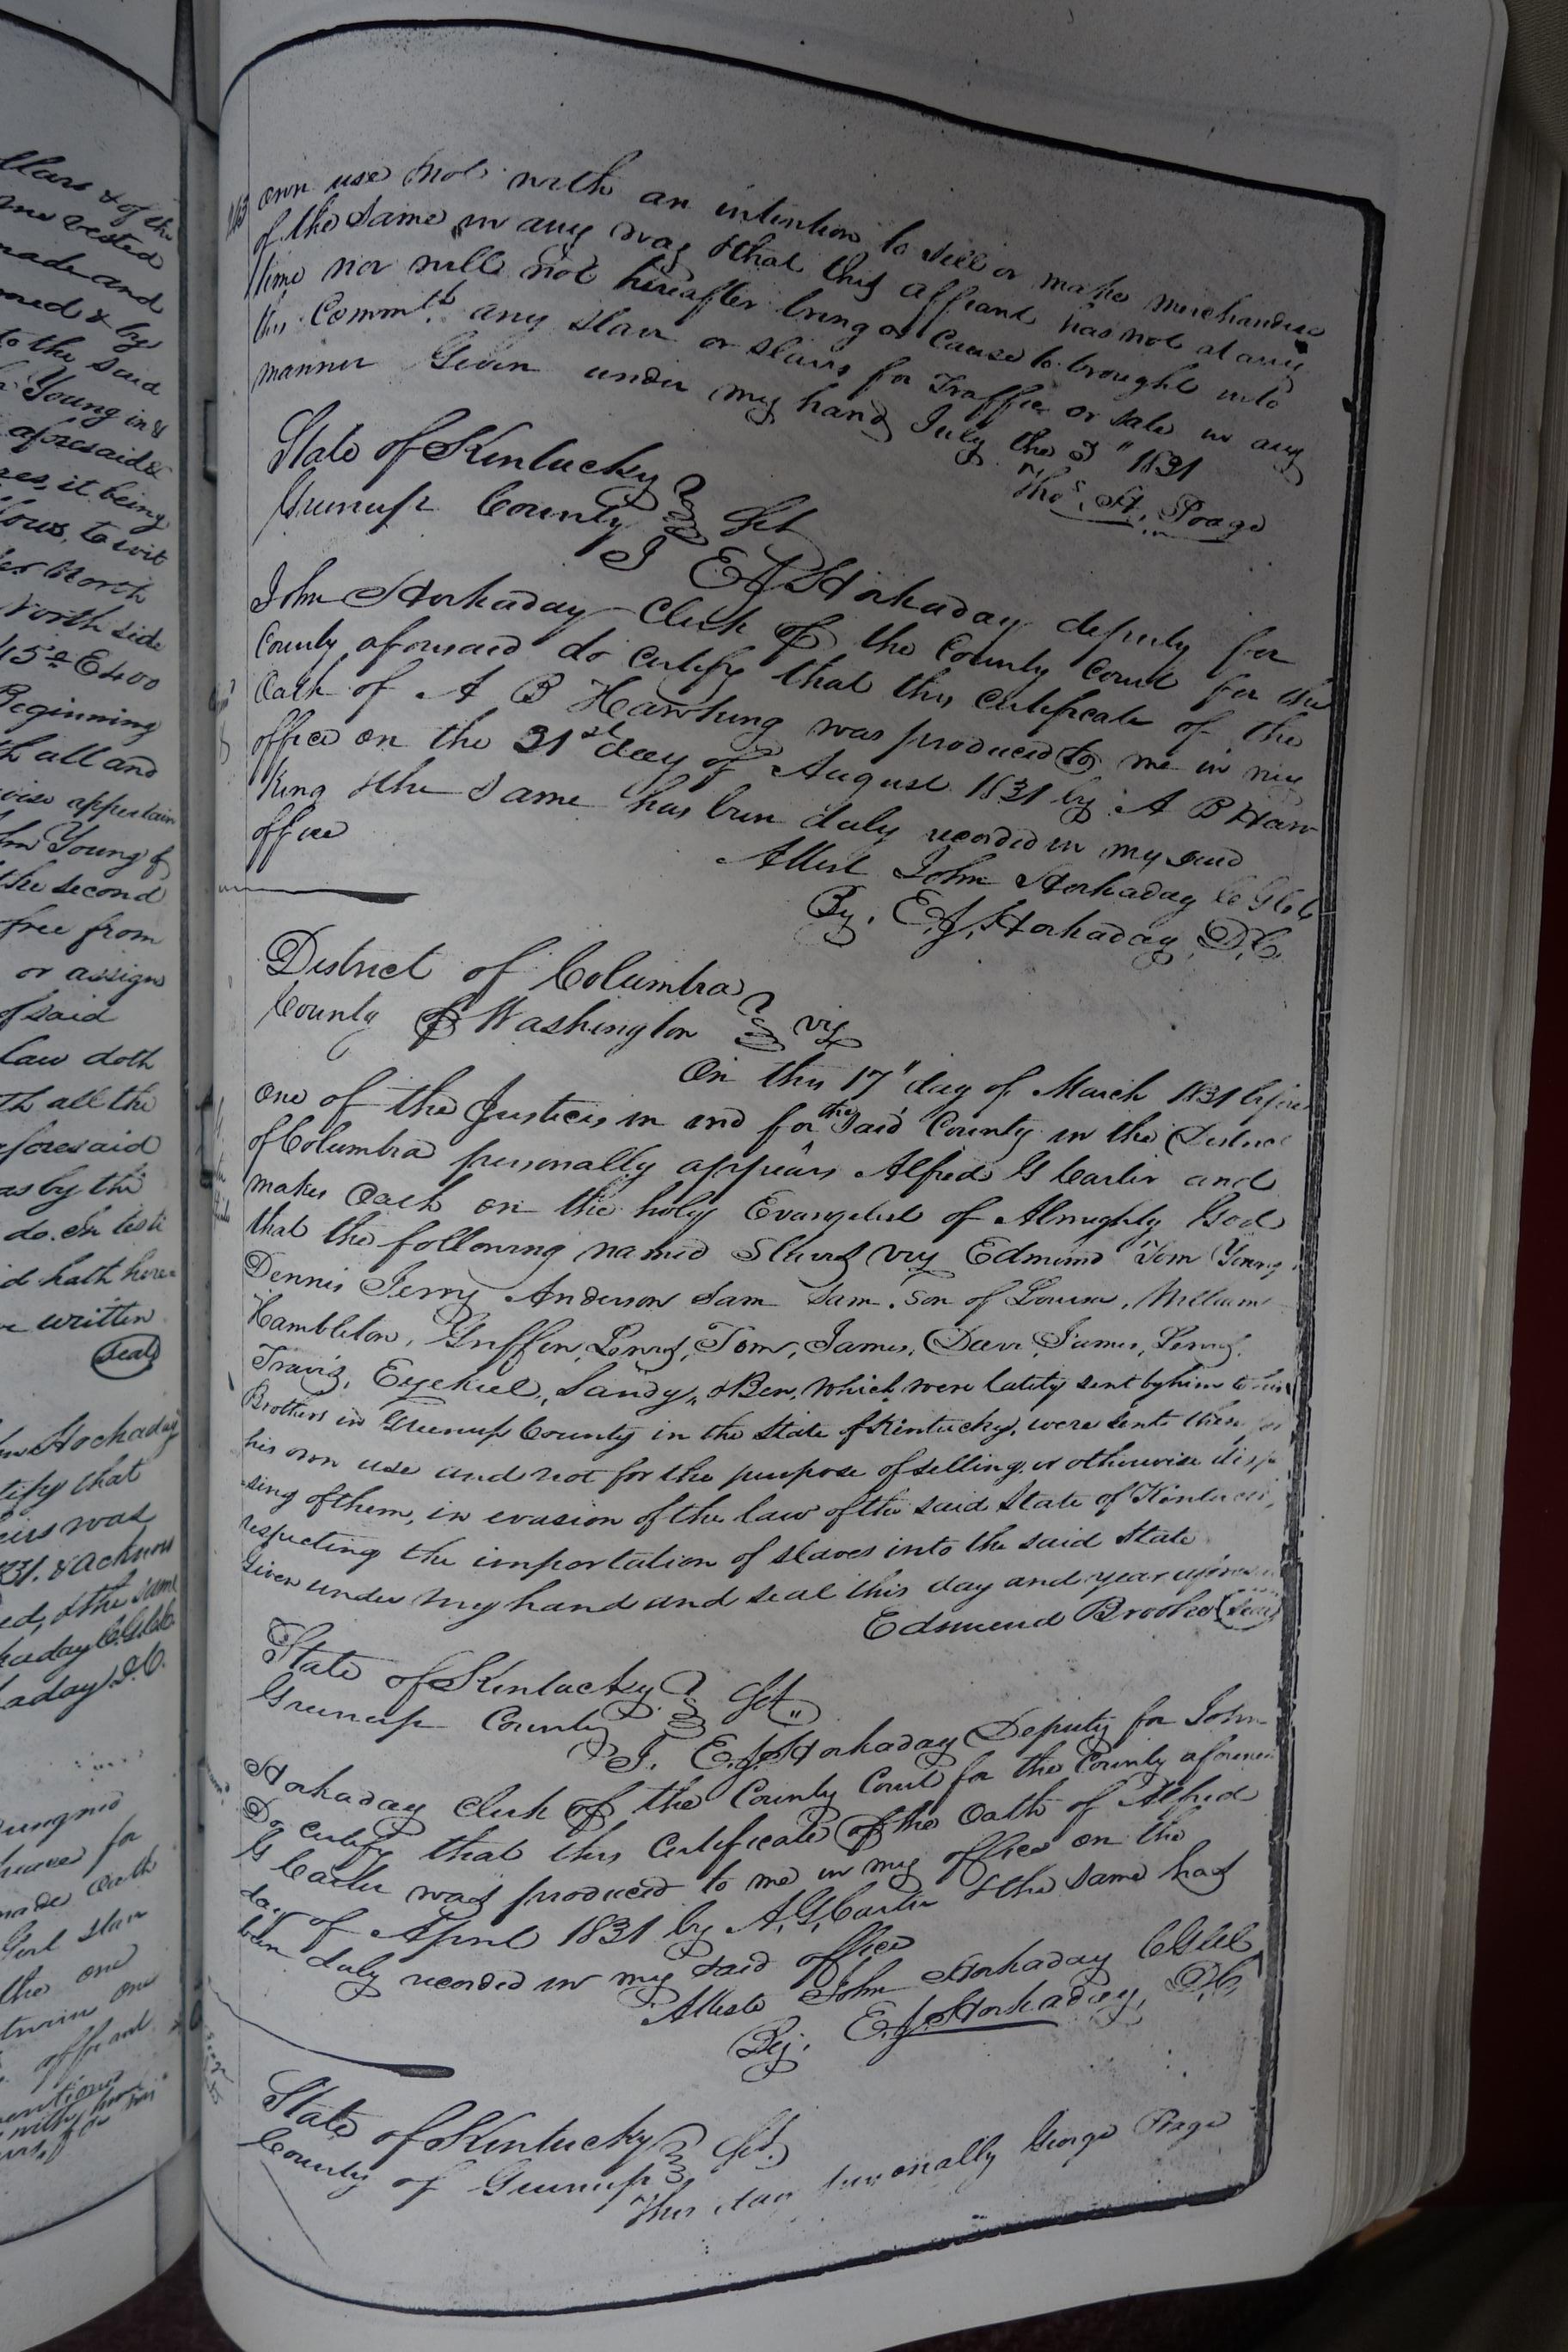 llars & of the
me vested
made and
med & by
to the said
Young in &
aforesaid &
res, it being
lows, to wit
North
North side
45° E 400
Beginning
th all and
wise appertain
Young of
the second
free from
or assign
of said
law doth
th all the
aforesaid
as by the
do. In testi
d hath here
written
Seal
Hockaday
tify that
was
31. & acknow
ed, & the same
kaday C.G.C.C.
aday D.C.
for
made oath
Girl slave
the one
one
affiant
own use not with an intention to sell or make merchandise
of the same in any way & that this affiant has not at any
time nor will not hereafter bring or cause to brought into
this Commth. any slave or slaves for Traffic or sale in any
manner Given under my hand July the 1831
Thos. H. Poage
State of Kentucky
Greenup County Sct
I E J Hockaday deputy for
John Hockaday Clerk of the County Court for the
County aforesaid do certify that this certificate of the
Oath of A B Hawking was produced to me in my
office on the 31st day of August 1831 by A B Haw
king & the same has been duly recorded in my said
office
Attest John Hockaday C G C C
By. E. J. Hockaday, D.C.
District of Columbia
County of Washington viz
On this 17" day of March 1831 before
one of the Justices in and for the said County in the District
of Columbia personally appears Alfred G Carter and
makes Oath on the holy Evangelist of Almighty God
that the following named Slaves viz Edmund Tom Young,
Dennis Jerry Anderson Sam Sam. Son of Louisa, William
Hambleton, Griffin, Lenny, Tom, James, Dave, James, Lenny.
Travis, Ezekiel, Sandy, & Ben, which were lately sent by him to his
Brothers in Greenup County in the State of Kentucky, were sent there for
his own use and not for the purpose of selling or otherwise dispo
sing of them, in evasion of the law of the said State of Kentucky,
respecting the importation of slaves into the said State
Given under my hand and seal this day and year aforesaid
Edmund Brooke (Seal)
State of Kentucky
Greenup County Sct
I. E. J. Hockaday Deputy for John
Hockaday clerk of the County Court for the County aforesaid
Do certify that this Certificate of the Oath of Alfred
G Carter was produced to me in my office on the
day of April 1831 by A. G. Carter & the same has
been duly recorded in my said office
Atteste John Hockaday C G C C
By. E. J. Hockaday, D.C.
State of Kentucky
County of Greenup Sct.
This day personally George Poage